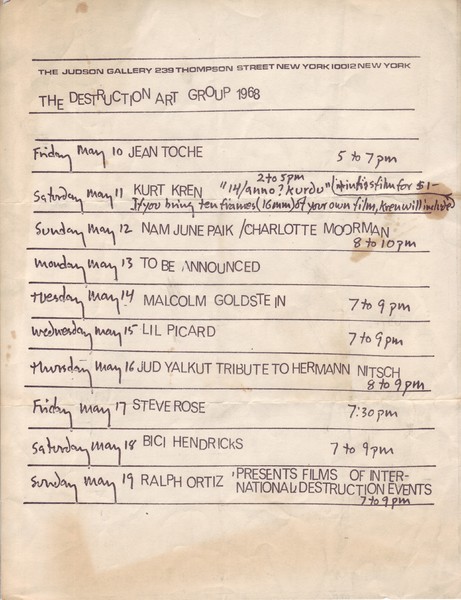 THE JUDSON GALLERY 239 THOMPSON STREET NEW YORK 10012 NEW YORK
THE DESTRUCTION ART GROUP 1968
Friday May 10 JEAN TOCHE 5 to 7pm
2 to 5pm
Saturday May 11 KURT KREN "14/anno? Kurdu" ( film for $1-
If you bring ten frames (16mm) of your own film, Kren will include
Sunday May 12 NAM JUNE PAIK / CHARLOTTE MOORMAN
8 to 10pm
Monday May 13 TO BE ANNOUNCED
Tuesday May 14 MALCOLM GOLDSTEIN 7 to 9pm
Wednesday May 15 LIL PICARD 7 to 9pm
Thursday May 16 JUD YALKUT TRIBUTE TO HERMANN NITSCH
8 to 9pm
Friday May 17 STEVE ROSE 7:30pm
Saturday May 18 BICI HENDRICKS 7 to 9pm
Sunday May 19 RALPH ORTIZ PRESENTS FILMS OF INTER-
NATIONAL DESTRUCTION EVENTS
7 to 9pm